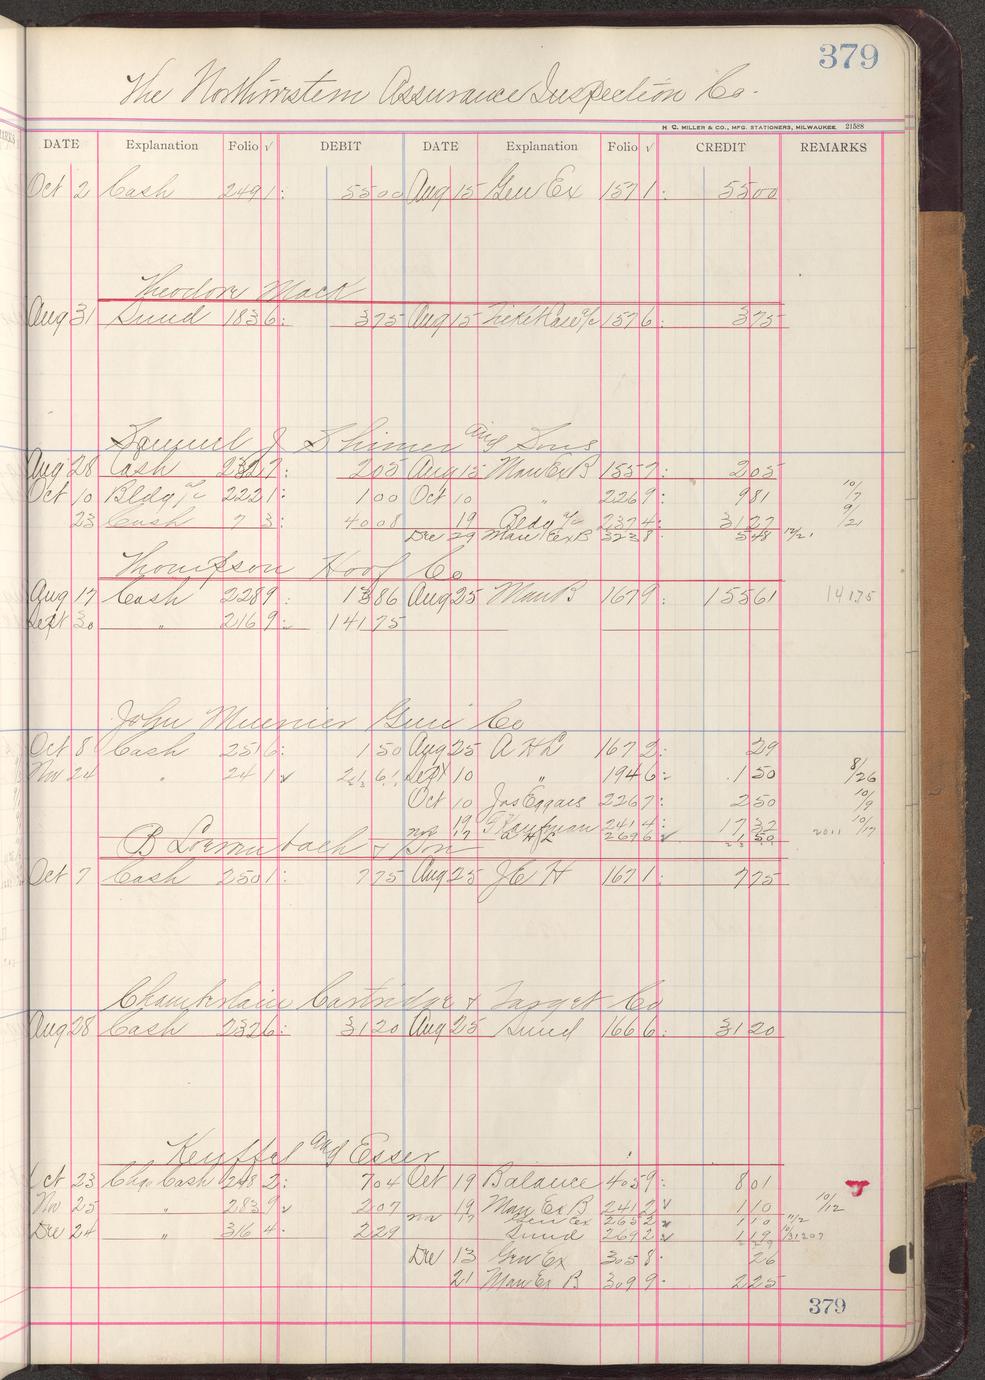 379
The Northwestern Assurance Inspection Co.
H. C. MILLER & CO., MFG. STATIONERS, MILWAUKEE 21588
DATE Explanation Folio √ DEBIT DATE Explanation Folio √ CREDIT REMARKS
Oct 2 Cash 249 1: 55 00 Aug 15 Gen Ex 157 1: 55 00
Theodore Mack
Aug 31 Sund 183 6: 3 75 Aug 15 a/c 157 6: 3 75
Samuel J Shimer and Sons
Aug 28 Cash 232 7: 2 05 Aug 15 Man Ex B 155 7: 2 05
Oct 10 Bldg a/c 222 1: 1 00 Oct 10 " 226 9: 9 81 10/7
23 Cash 7 3: 40 08 19 Bldg a/c 237 4: 31 27 9/21
Dec 29 Man Ex B 323 8. 5 48 12/2
Thompson Hoof Co
Aug 17 Cash 228 9: 13 86 Aug 25 Man B 167 9: 155 61 141 75
Sept 30 " 216 9: 141 75
John Muenier Gun Co
Oct 8 Cash 251 6: 1 50 Aug 25 A H L 167 2: 29
Nov 24 " 241 √ 21 61 Sept 10 " 194 6: 1 50 8/26
Oct 10 Jos Eggars 226 7: 2 50 10/9
19 Kaufman 241 4: 17 32 20 11 10/17
Nov 17 A H L 269 6 √ 1 50
B Loewenbach & Son
Oct 7 Cash 250 1: 7 75 Aug 25 J E H 167 1: 7 75
Chamberlain Cartridge & Target Co
Aug 28 Cash 232 6: 31 20 Aug 25 Sund 166 6: 31 20
Keuffel and Esser
Oct 23 Cash 248 2: 7 04 Oct 19 Balance 405 9: 8 01
Nov 25 " 283 9 √ 2 07 19 Man Ex B 241 2 √ 1 10 10/12
Nov 17 Gen Ex 265 2 √ 1 10 11/2
Dec 24 " 316 4. 2 29 Sund 269 2 √ 1 19 10/31 2 07
Dec 13 Gen Ex 305 8. 26
21 Man Ex B 309 9. 2 25
379